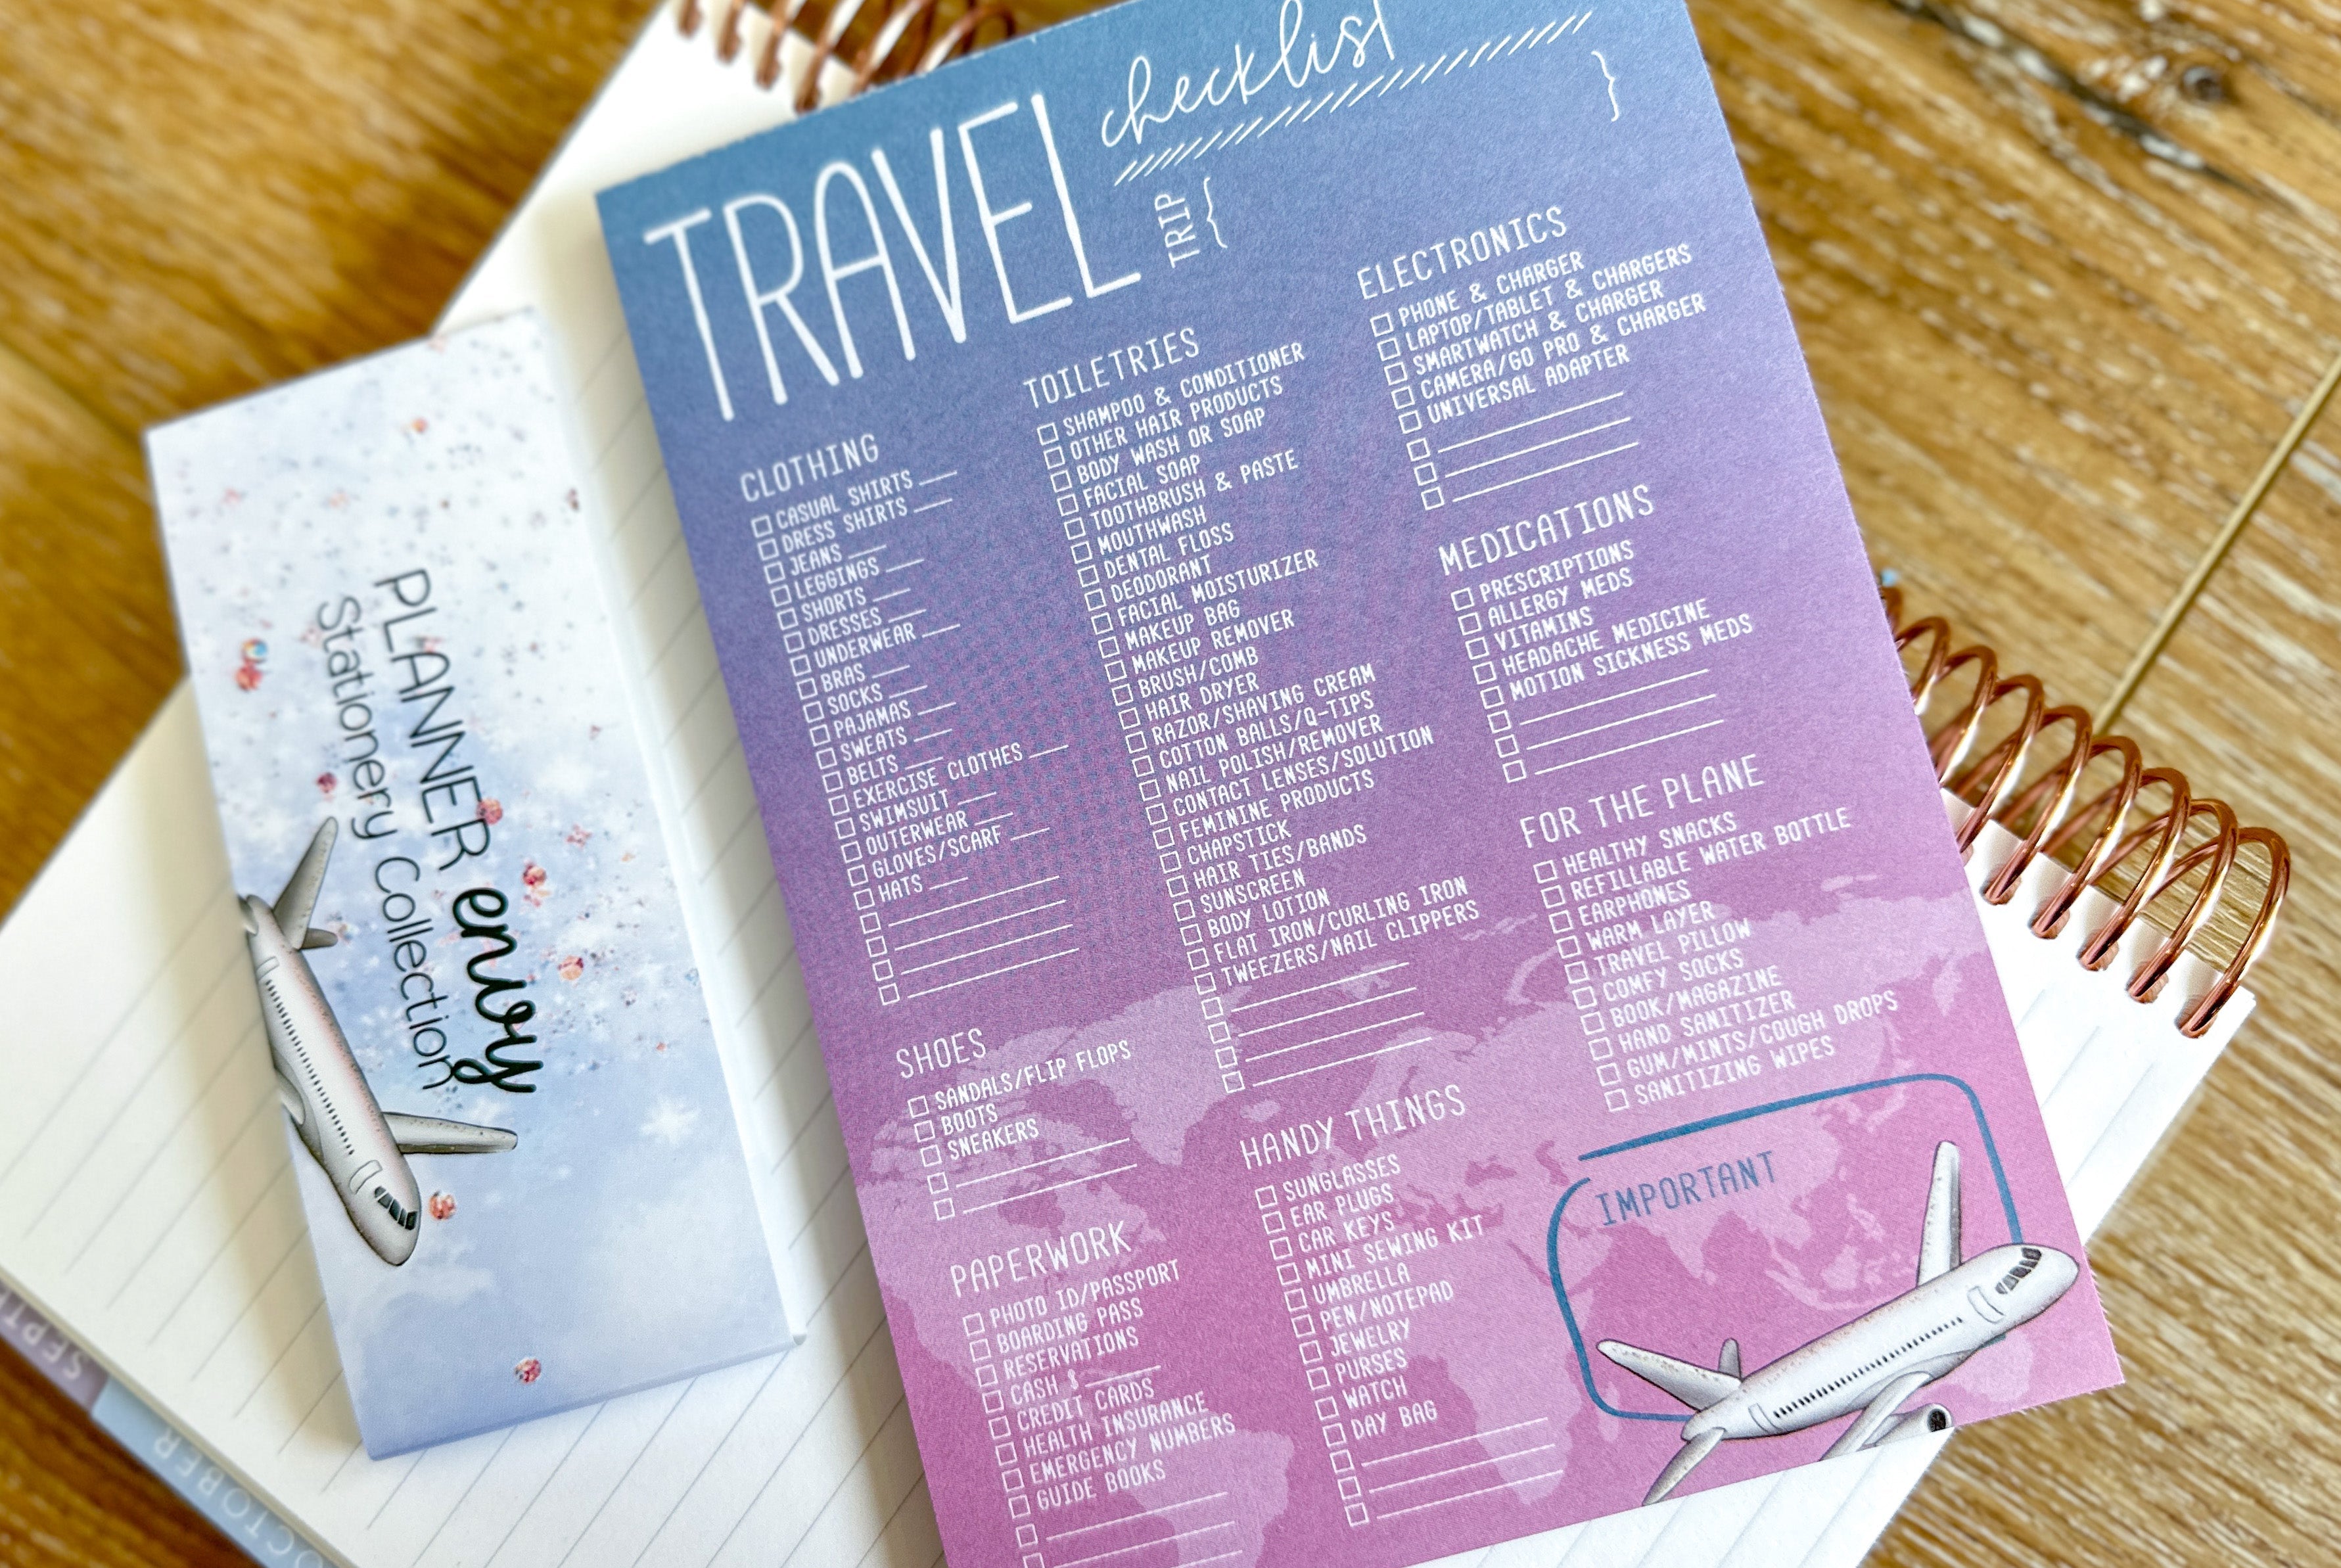 TRAVEL checklist
TRIP { }
CLOTHING
CASUAL SHIRTS
DRESS SHIRTS
JEANS
LEGGINGS
SHORTS
DRESSES
UNDERWEAR
BRAS
SOCKS
PAJAMAS
SWEATS
BELTS
EXERCISE CLOTHES
SWIMSUIT
OUTERWEAR
GLOVES/SCARF
HATS
SHOES
SANDALS/FLIP FLOPS
BOOTS
SNEAKERS
PAPERWORK
PHOTO ID/PASSPORT
BOARDING PASS
RESERVATIONS
CASH $
CREDIT CARDS
HEALTH INSURANCE
EMERGENCY NUMBERS
GUIDE BOOKS
TOILETRIES
SHAMPOO & CONDITIONER
OTHER HAIR PRODUCTS
BODY WASH OR SOAP
FACIAL SOAP
TOOTHBRUSH & PASTE
MOUTHWASH
DENTAL FLOSS
DEODORANT
FACIAL MOISTURIZER
MAKEUP BAG
MAKEUP REMOVER
BRUSH/COMB
HAIR DRYER
RAZOR/SHAVING CREAM
COTTON BALLS/Q-TIPS
NAIL POLISH/REMOVER
CONTACT LENSES/SOLUTION
FEMININE PRODUCTS
CHAPSTICK
HAIR TIES/BANDS
SUNSCREEN
BODY LOTION
FLAT IRON/CURLING IRON
TWEEZERS/NAIL CLIPPERS
HANDY THINGS
SUNGLASSES
EAR PLUGS
CAR KEYS
MINI SEWING KIT
UMBRELLA
PEN/NOTEPAD
JEWELRY
PURSES
WATCH
DAY BAG
ELECTRONICS
PHONE & CHARGER
LAPTOP/TABLET & CHARGERS
SMARTWATCH & CHARGER
CAMERA/GO PRO & CHARGER
UNIVERSAL ADAPTER
MEDICATIONS
PRESCRIPTIONS
ALLERGY MEDS
VITAMINS
HEADACHE MEDICINE
MOTION SICKNESS MEDS
FOR THE PLANE
HEALTHY SNACKS
REFILLABLE WATER BOTTLE
EARPHONES
WARM LAYER
TRAVEL PILLOW
COMFY SOCKS
BOOK/MAGAZINE
HAND SANITIZER
GUM/MINTS/COUGH DROPS
SANITIZING WIPES
IMPORTANT
PLANNER envy
Stationery Collection
OCTOBER